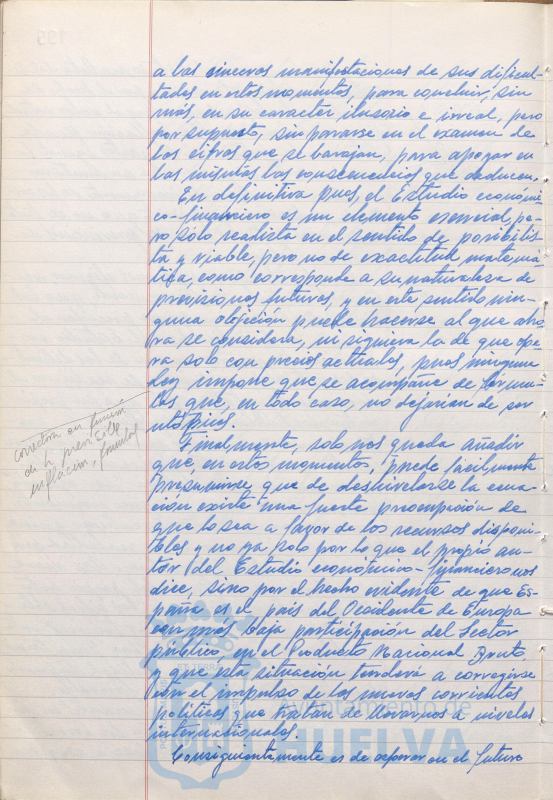 a las sinceras manifestaciones de sus dificul-
tades en estos momentos, para concluir, sin
más, en su caracter ilusorio e irreal, pero
por supuesto, sin pararse en el examen de
las cifras que se barajan, para apoyar en
las mismas las consecuencias que deducen.
En definitiva pues, el Estudio económi
co-financiero es un elemento esencial, pe-
ro solo realista en el sentido de posibilis
ta y viable, pero no de exactitud matemá
tica, como corresponde a su naturaleza de
previsiones futuras, y en este sentido nin-
guna objeción puede hacerse al que aho
ra se considera, ni siquiera la de que ope
ra solo con precios actuales, pues ninguna
Ley impone que se acompañe de formu
las que, en todo caso, no dejarian de ser
utópicas.
correctora en función
de la previsible
inflación, formulas
Finalmente, solo nos queda añadir
que, en estos momentos, puede facilmente
presumirse, que de desnivelarse la ecua
ción existe una fuerte preocupación de
que lo sea a favor de los recursos disponi
bles y no ya solo por lo que el propio au-
tor del Estudio económico-financiero nos
dice, sino por el hecho evidente de que Es-
paña es el pais del Occidente de Europa
con más baja participación del Sector
público en el Producto Nacional Bruto,
y que esta situación tenderá a corregirse
con el impulso de las nuevas corrientes
politicas que tratan de llevarnos a niveles
internacionales.
Consiguientemente es de esperar en el futuro
Ayuntamiento de
HUELVA